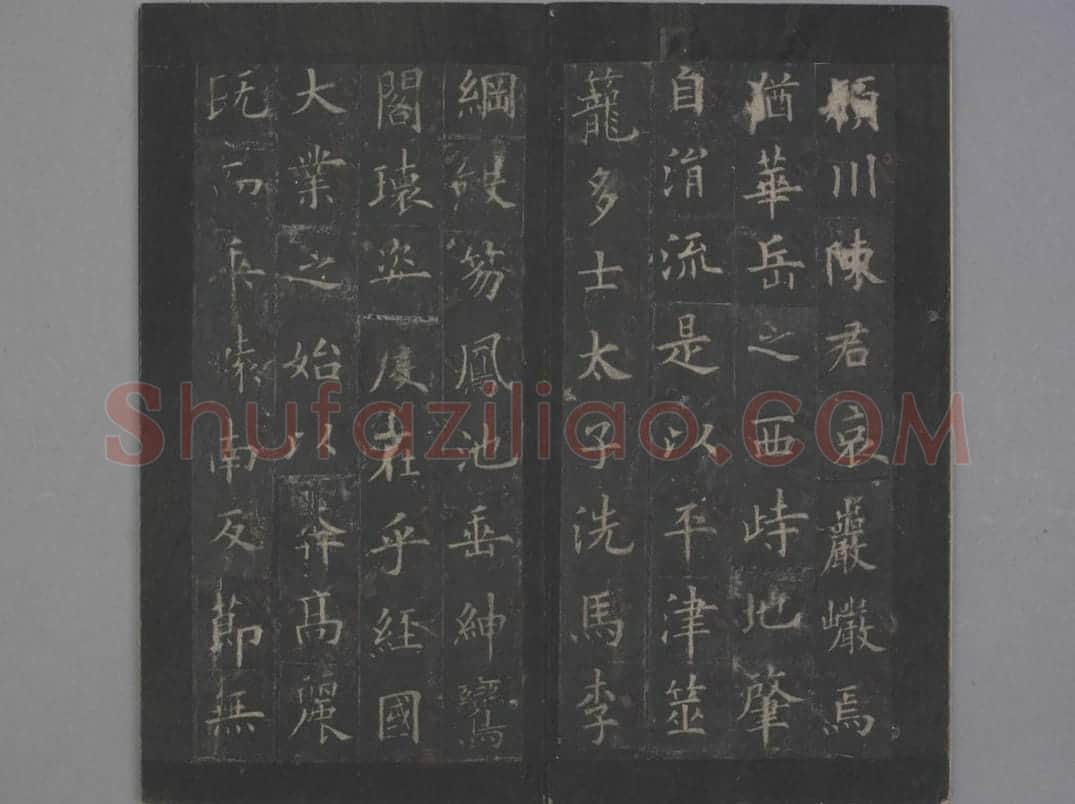 川陳君哀巖巖焉
猶華岳之西峙地肇
自涓流是以平津筮
籠多士太子洗馬李
綱綬笏鳳池垂紳鸞
閣瓌姿度在乎經國
大業之始以高麗
既而兵南反節無
Shufaziliao.COM